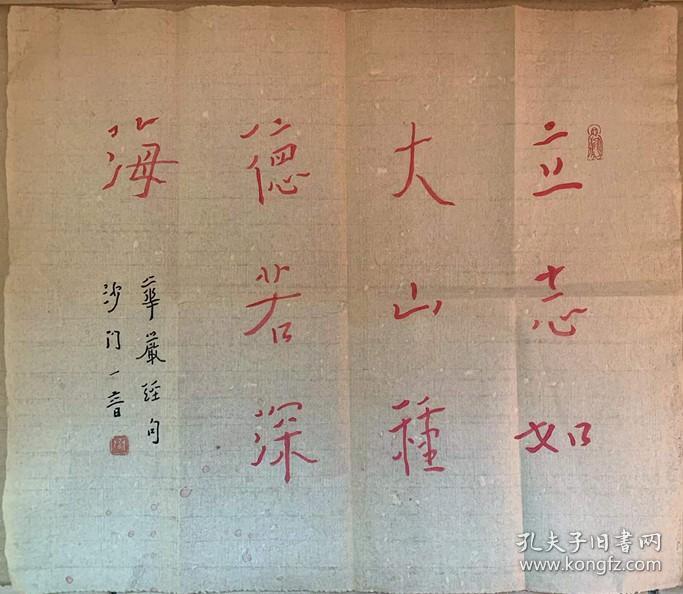 立志如
大山種
德若深
海
華嚴經句
沙门一音
孔夫子旧書网
www.kongfz.com